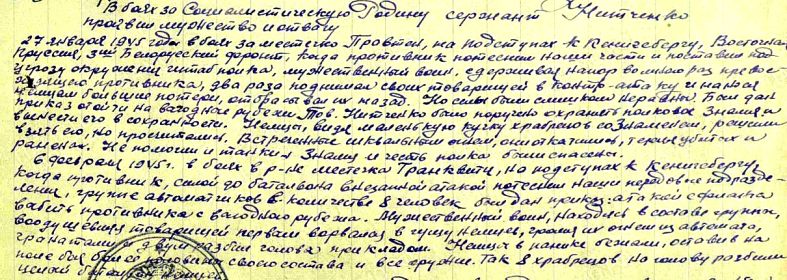 В боях за Социалистическую Родину сержант Нитченко
проявил мужество и отвагу
27 января 1945 года в боях за местечко Провтен, на подступах к Кенигсбергу, Восточная
Пруссия, 3ий Белорусский фронт, когда противник потеснил наши части и поставил под
угрозу окружения штаб полка, мужественный воин, сдерживая напор во много раз превос-
ходящего противника, два раза поднимал своих товарищей в контр-атаку и нанося
немцам большие потери, отбрасывал их назад. Но силы были слишком неравны. Был дан
приказ отойти на выгодные рубежи. Тов. Нитченко было поручено охранять полковое Знамя и
вынести его в сохранности. Немцы, видя маленькую кучку храбрецов со Знаменем, решили
взять его, но просчитались. Встреченные шквальным огнем, они откатились, теряя убитых и
раненых. Не помогли и танки. Знамя и честь полка были спасены.
6 февраля 1945 г. в боях в р-не местечка Транквитц, на подступах к Кенигсбергу,
когда противник, силой до батальона внезапной атакой потеснил наши передовые подразде-
ления, группе автоматчиков в количестве 8 человек был дан приказ: атакой с фланга
выбить противника с выгодного рубежа. Мужественный воин, находясь в составе группы,
воодушевляя товарищей первым ворвался в гущу немцев, громя их огнем из автомата,
гранатами и двум разбил голова прикладом. Немцы в панике бежали, оставив на
поле боя более половины своего состава и все оружие. Так 8 храбрецов на голову разбили
целый батальон немцев